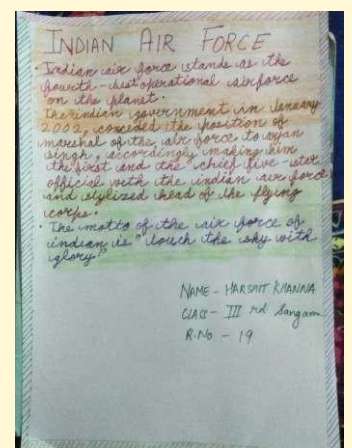 INDIAN AIR FORCE
• Indian air force stands as the
fourth-best operational airforce
on the planet.
The indian government in January
2002, conceded the position of
marshal of the air force to arjan
singh, accordingly making him
the first and the chief five-star
official with the indian air force
and stylized head of the flying
corps.
• The motto of the air force of
indian is "touch the sky with
glory."
NAME - HARSHIT KHANNA
CLASS - III rd Sangam
R.No - 19